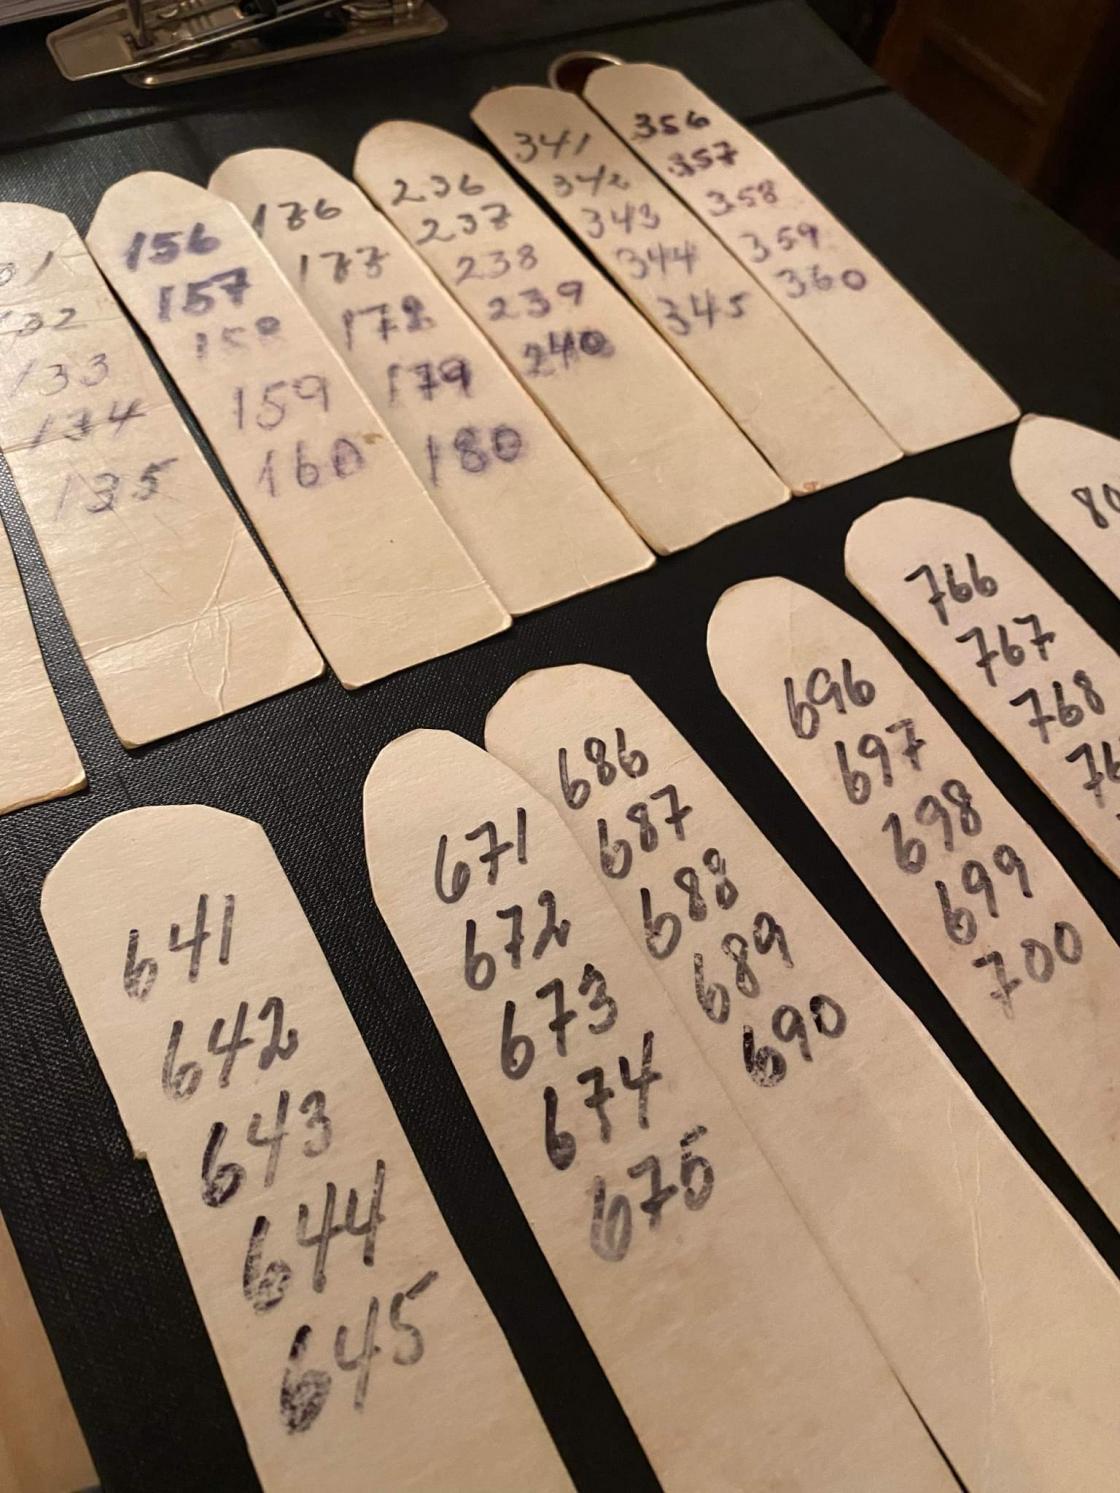 132
133
134
135
156
157
158
159
160
176
177
178
179
180
236
237
238
239
240
341
342
343
344
345
356
357
358
359
360
641
642
643
644
645
671
672
673
674
675
686
687
688
689
690
696
697
698
699
700
766
767
768